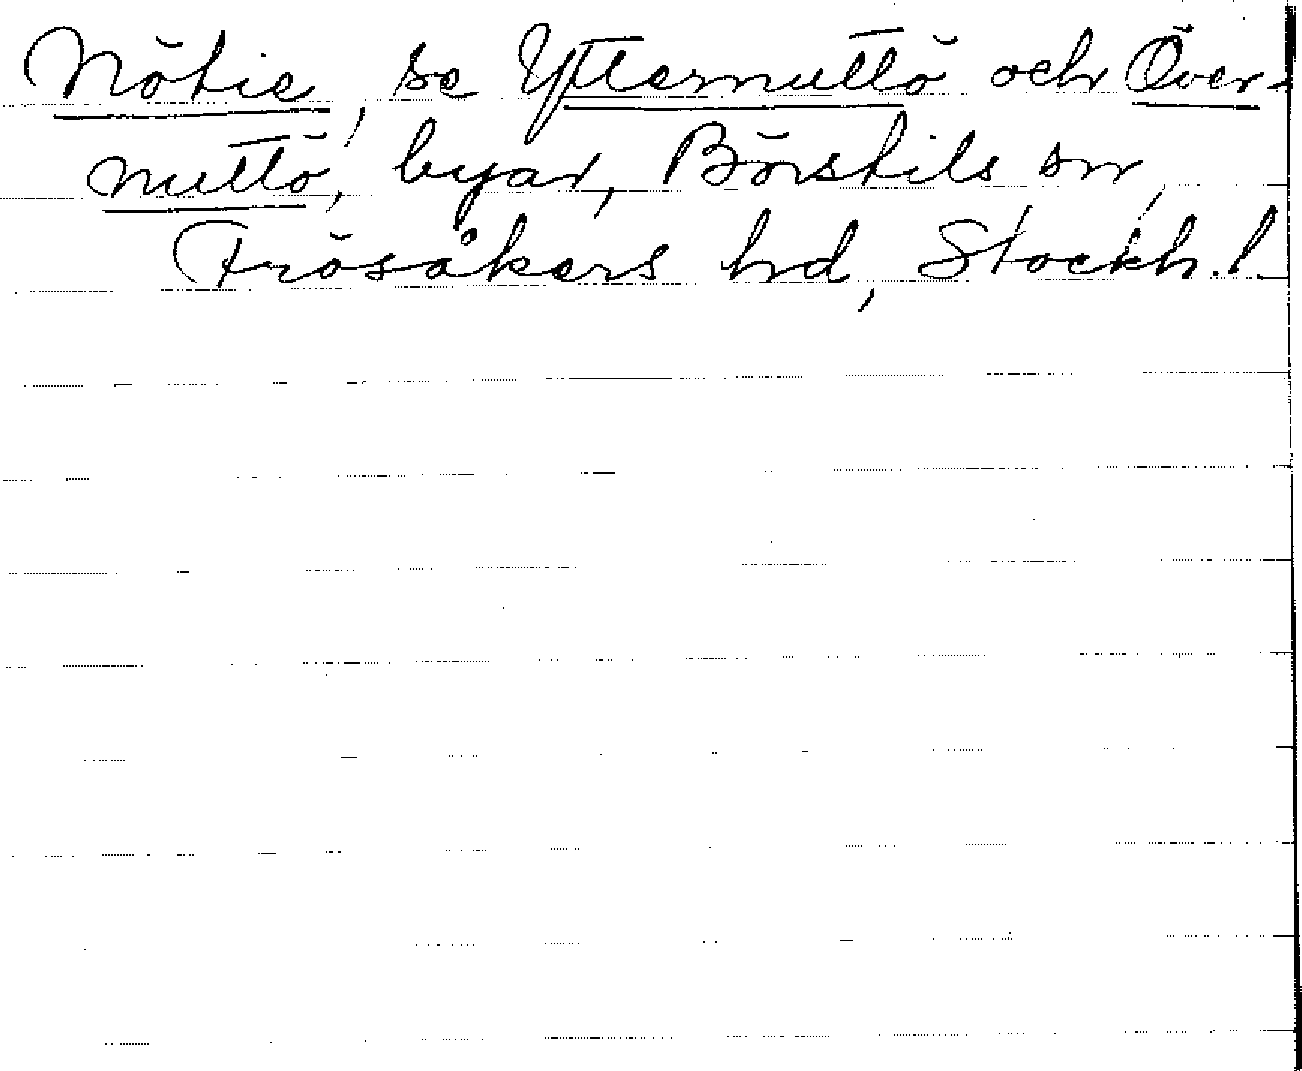 Nötie, se Ytternuttö och Över-
nuttö, byar, Börstils sn,
Frösåkers hd, Stockh. l.